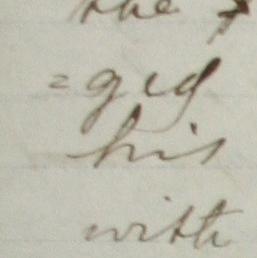 the
=ged
his
with